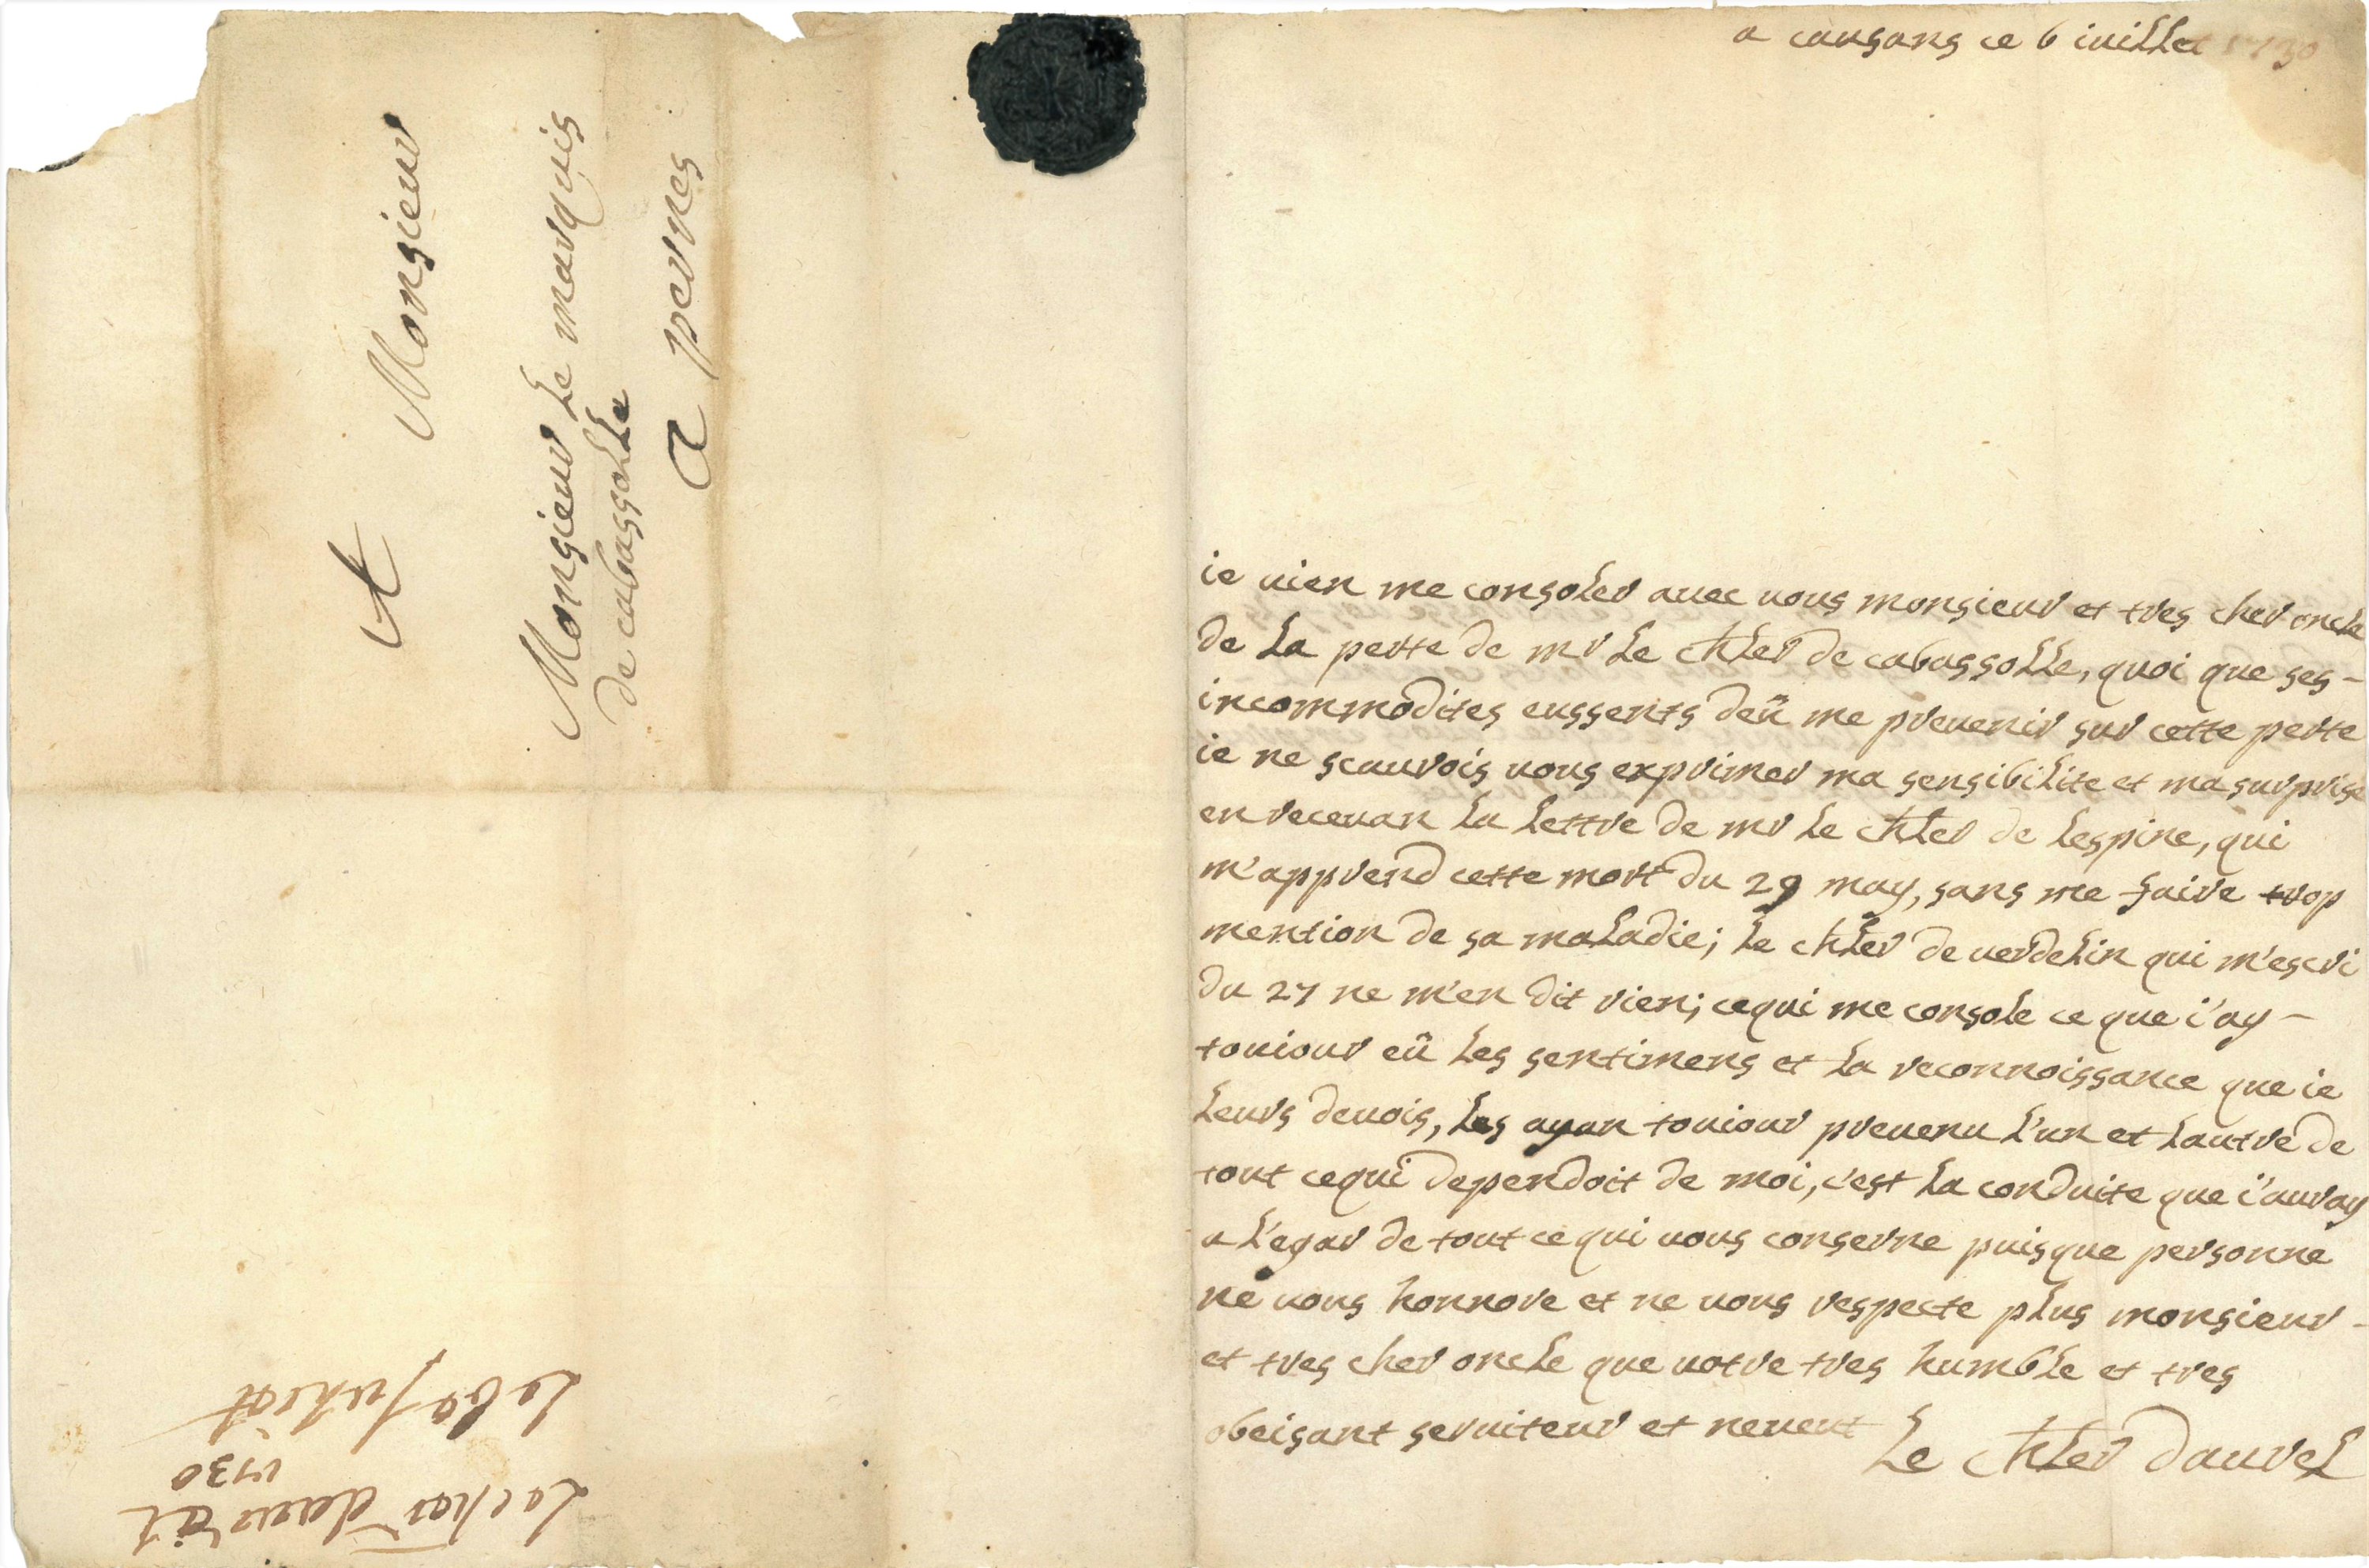 A Monsieur
Monsieur le marquis
de cabassolle
a pernes
le chēr daurèl
1730
le 6e juhiět
a causans ce 6 iuillet 1730
ie uien me consoler auec uous monsieur et tres cher oncle
de la perte de mr le chler de cabassolle, quoi que ses -
incommodites eussents deü me preuenir sur cette perte
ie ne scaurois uous exprimer ma sensibilite et ma surprise
en receuan la lettre de mr le chler de lespine, qui
m'apprend cette mort du 29 may, sans me faire trop
mention de sa maladie; le chler de uerdelin qui m'escri
du 27 ne m'en dit rien; cequi me console ce que i'ay -
touiour eü les sentimens et la reconnoissance que ie
leurs deuois, les ayan touiour preuenu l'un et lautre de
tout cequi dependoit de moi, c'est la conduite que i'auray
a l'egar de tout ce qui uous conserne puisque personne
ne uous honnore et ne uous respecte plus monsieur -
et tres cher oncle que uotre tres humble et tres
obeisant seruiteur et neueut
le chler daurel